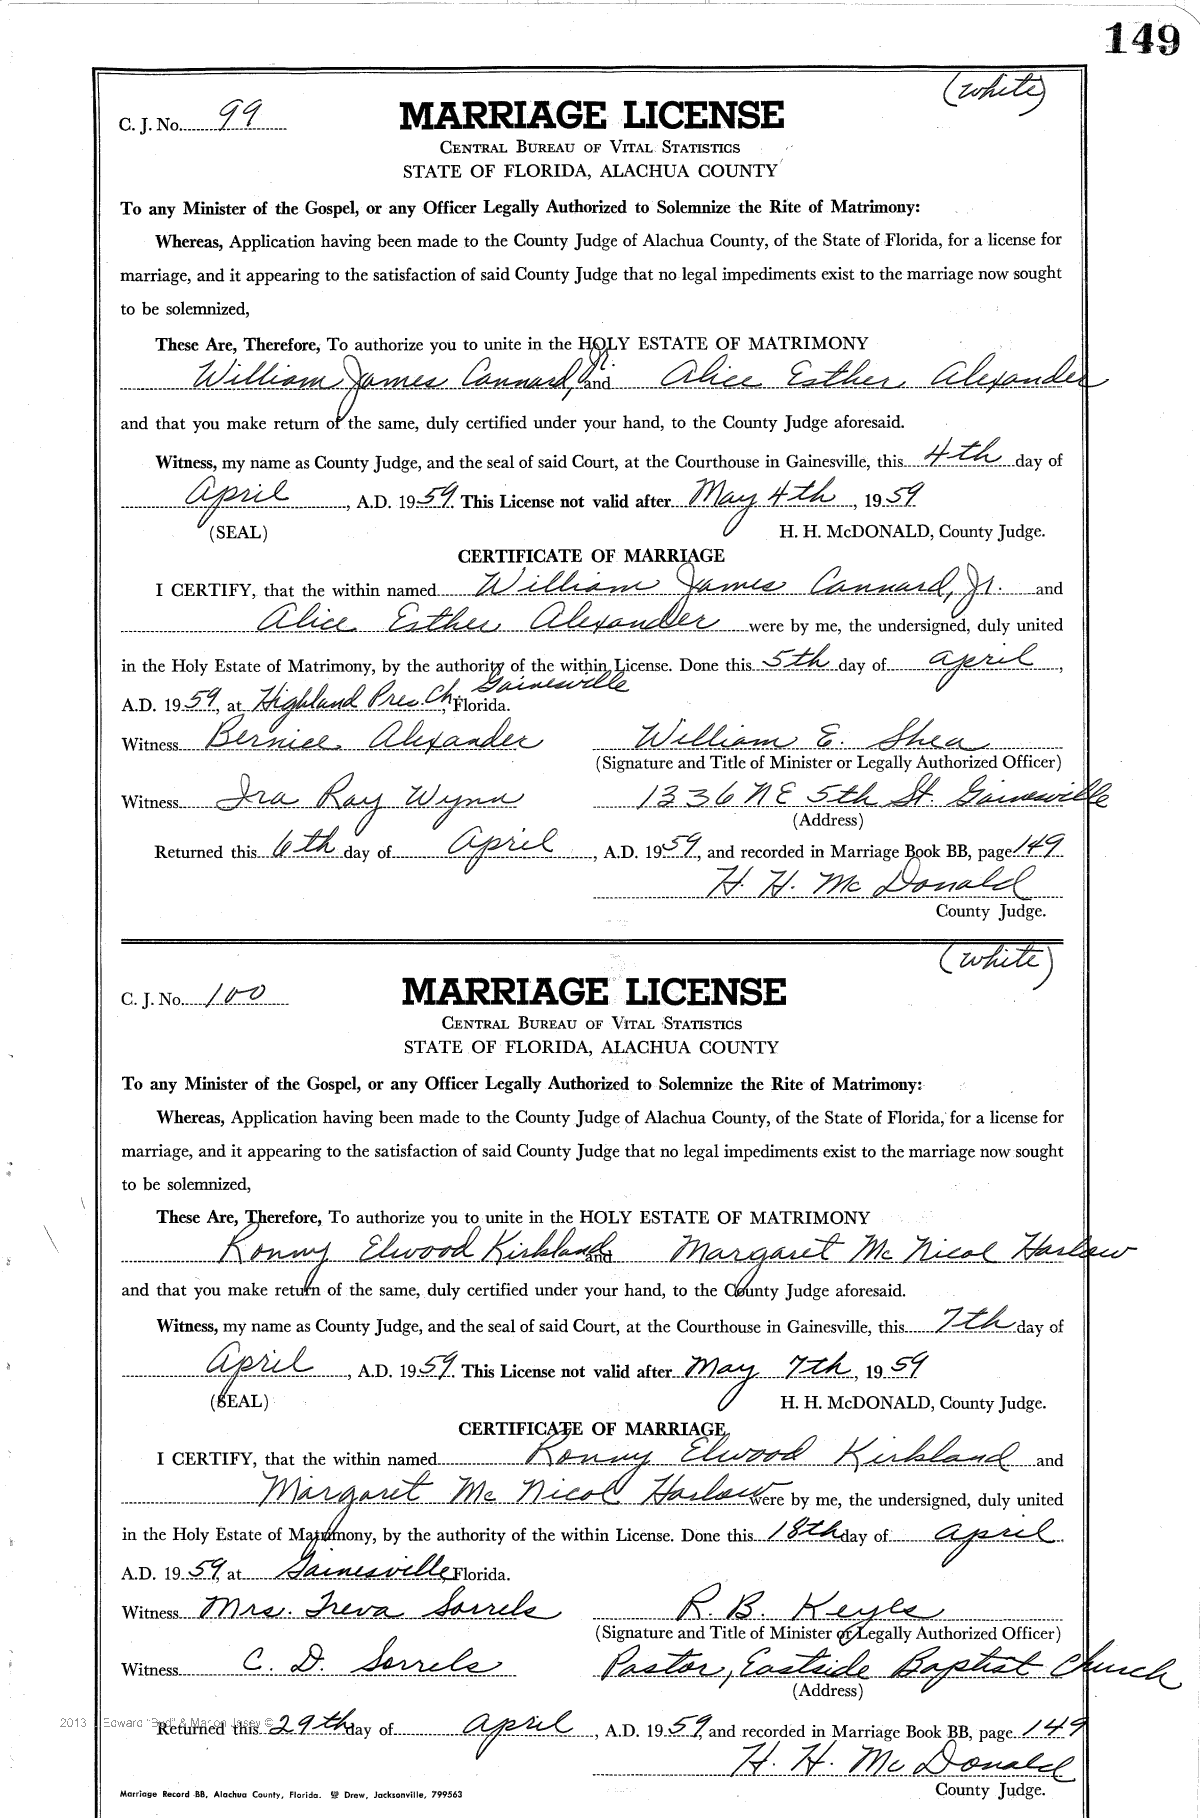 149
(white)
C. J. No. 99
MARRIAGE LICENSE
CENTRAL BUREAU OF VITAL STATISTICS
STATE OF FLORIDA, ALACHUA COUNTY
To any Minister of the Gospel, or any Officer Legally Authorized to Solemnize the Rite of Matrimony:
Whereas, Application having been made to the County Judge of Alachua County, of the State of Florida, for a license for
marriage, and it appearing to the satisfaction of said County Judge that no legal impediments exist to the marriage now sought
to be solemnized,
These Are, Therefore, To authorize you to unite in the HOLY ESTATE OF MATRIMONY
William James Cannard, Jr. and Alice Esther Alexander
and that you make return of the same, duly certified under your hand, to the County Judge aforesaid.
Witness, my name as County Judge, and the seal of said Court, at the Courthouse in Gainesville, this 4th day of
April, A.D. 1959. This License not valid after May 4th, 1959
(SEAL) H. H. McDONALD, County Judge.
CERTIFICATE OF MARRIAGE
I CERTIFY, that the within named William James Cannard, Jr. and
Alice Esther Alexander were by me, the undersigned, duly united
in the Holy Estate of Matrimony, by the authority of the within License. Done this 5th day of April,
A.D. 1959, at Highland Pres. Ch. Gainesville, Florida.
Witness Bernice Alexander William E. Shea
(Signature and Title of Minister or Legally Authorized Officer)
Witness Ira Ray Wynn 1336 NE 5th St. Gainesville
(Address)
Returned this 6th day of April, A.D. 1959, and recorded in Marriage Book BB, page 149
H. H. McDonald
County Judge.
(white)
C. J. No. 100
MARRIAGE LICENSE
CENTRAL BUREAU OF VITAL STATISTICS
STATE OF FLORIDA, ALACHUA COUNTY
To any Minister of the Gospel, or any Officer Legally Authorized to Solemnize the Rite of Matrimony:
Whereas, Application having been made to the County Judge of Alachua County, of the State of Florida, for a license for
marriage, and it appearing to the satisfaction of said County Judge that no legal impediments exist to the marriage now sought
to be solemnized,
These Are, Therefore, To authorize you to unite in the HOLY ESTATE OF MATRIMONY
Ronny Elwood Kirkland and Margaret McNicol Harlow
and that you make return of the same, duly certified under your hand, to the County Judge aforesaid.
Witness, my name as County Judge, and the seal of said Court, at the Courthouse in Gainesville, this 7th day of
April, A.D. 1959. This License not valid after May 7th, 1959
(SEAL) H. H. McDONALD, County Judge.
CERTIFICATE OF MARRIAGE
I CERTIFY, that the within named Ronny Elwood Kirkland and
Margaret McNicol Harlow were by me, the undersigned, duly united
in the Holy Estate of Matrimony, by the authority of the within License. Done this 18th day of April.
A.D. 1959, at Gainesville, Florida.
Witness Mrs. Treva Sorrels R. B. Keyes
(Signature and Title of Minister or Legally Authorized Officer)
Witness C. D. Sorrels Pastor, Eastside Baptist Church
(Address)
Returned this 29th day of April, A.D. 1959, and recorded in Marriage Book BB, page 149
2013 Edward "Bud" & Marion
H. H. McDonald
County Judge.
Marriage Record BB, Alachua County, Florida. Drew, Jacksonville, 799563